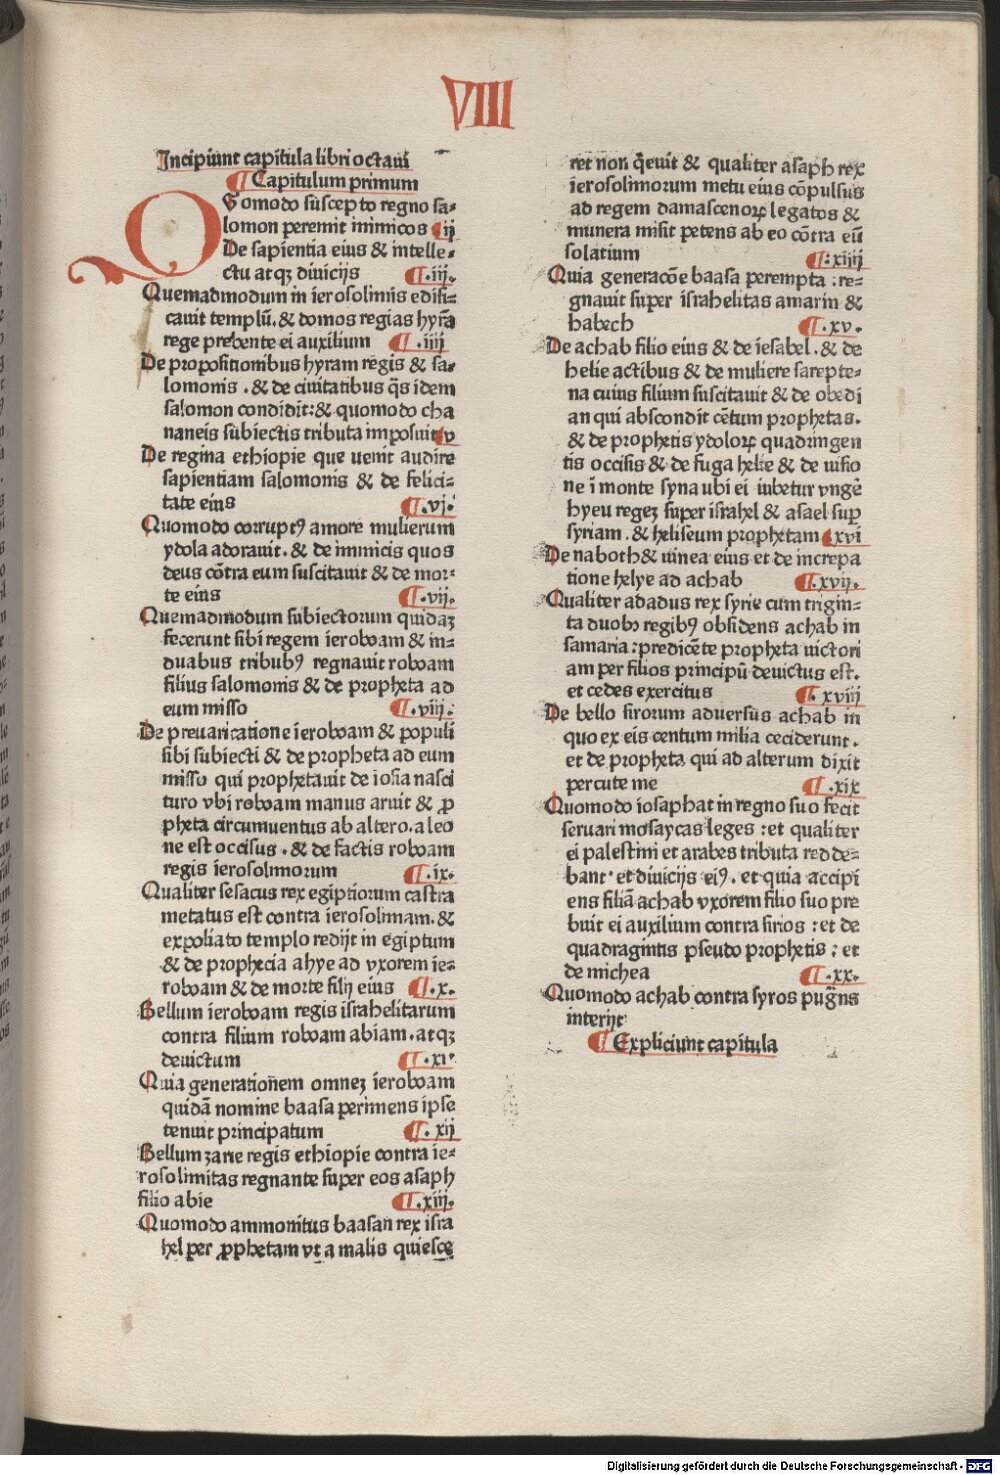 VIII
Incipiunt capitula libri octaui
¶ Capitulum primum
QUomodo suscepto regno sa-
lomon peremit inimicos ¶ ij
De sapientia eius & intelle-
ctu atqꝫ diuicijs ¶ .iij.
Quemadmodum in ierosolimis edifi-
cauit templū. & domos regias hyrā
rege prebente ei auxilium ¶ .iiij
De propositionibus hyram regis & sa-
lomonis . & de ciuitatibus q̄s idem
salomon condidit: & quomodo cha
naneis subiectis tributa imposuit ¶ v
De regina ethiopie que uenit audire
sapientiam salomonis & de felici-
tate eius ¶ .vj.
Quomodo corruptꝰ amore mulierum
ydola adorauit. & de inimicis quos
deus cōtra eum suscitauit & de mor-
te eius ¶ .vij.
Quemadmodum subiectorum quidaꝫ
fecerunt sibi regem ieroboam & in-
duabus tribubꝰ regnauit roboam
filius salomonis & de propheta ad
eum misso ¶ .viij.
De preuaricatione ieroboam & populi
sibi subiecti & de propheta ad eum
misso qui prophetauit de iosia nasci
turo vbi roboam manus aruit & ꝓ
pheta circumuentus ab altero. a leo
ne est occisus . & de factis roboam
regis ierosolimorum ¶ .ix.
Qualiter sesacus rex egiptiorum castra
metatus est contra ierosolimam. &
expoliato templo redijt in egiptum
& de prophecia ahye ad vxorem ie-
roboam & de morte filij eius ¶ .x.
Bellum ieroboam regis israhelitarum
contra filium roboam abiam. atqꝫ
deuictum ¶ .xi.
Quia generationem omneꝫ ieroboam
quidā nomine baasa perimens ipse
tenuit principatum ¶ . xij
Bellum zarie regis ethiopie contra ie-
rosolimitas regnante super eos asaph
filio abie ¶ .xiij.
Quomodo ammonitus baasan rex isra
hel per ꝓphetam vt a malis quiesce
ret non q̄euit & qualiter asaph rex
ierosolimorum metu eius cōpulsus
ad regem damascenoꝝ legatos &
munera misit petens ab eo cōtra eū
solatium ¶ : xiiij
Quia generacōe baasa perempta : re-
gnauit super israhelitas amarin &
habech ¶ . xv.
De achab filio eius & de iesabel . & de
helie actibus & de muliere sarepte-
na cuius filium suscitauit & de obedi
an qui abscondit cētum prophetas.
& de prophetis ydoloꝝ quadringen
tis occisis & de fuga helie & de uisio
ne ī monte syna ubi ei iubetur vngē
hyeu regeꝫ super israhel & asael suꝑ
syriam . & heliseum prophetam ¶ xvi
De naboth & uinea eius et de increpa
tione helye ad achab ¶ .xvij.
Qualiter adadus rex syrie cum trigin-
ta duobꝫ regibꝰ obsidens achab in
samaria : predicēte propheta uictori
am per filios principū deuictus est.
et cedes exercitus ¶ . xviij
De bello sirorum aduersus achab in
quo ex eis centum milia ceciderunt .
et de propheta qui ad alterum dixit
percute me ¶ .xix
Quomodo iosaphat in regno suo fecit
seruari mosaycas leges : et qualiter
ei palestini et arabes tributa redde-
bant . et diuicijs eiꝰ. et quia accipi
ens filiā achab vxorem filio suo pre
buit ei auxilium contra sirios : et de
quadragintis pseudo prophetis : et
de michea ¶ .xx.
Quomodo achab contra syros pugn̄s
interijt
¶ Expliciunt capitula
Digitalisierung gefördert durch die Deutsche Forschungsgemeinschaft - DFG